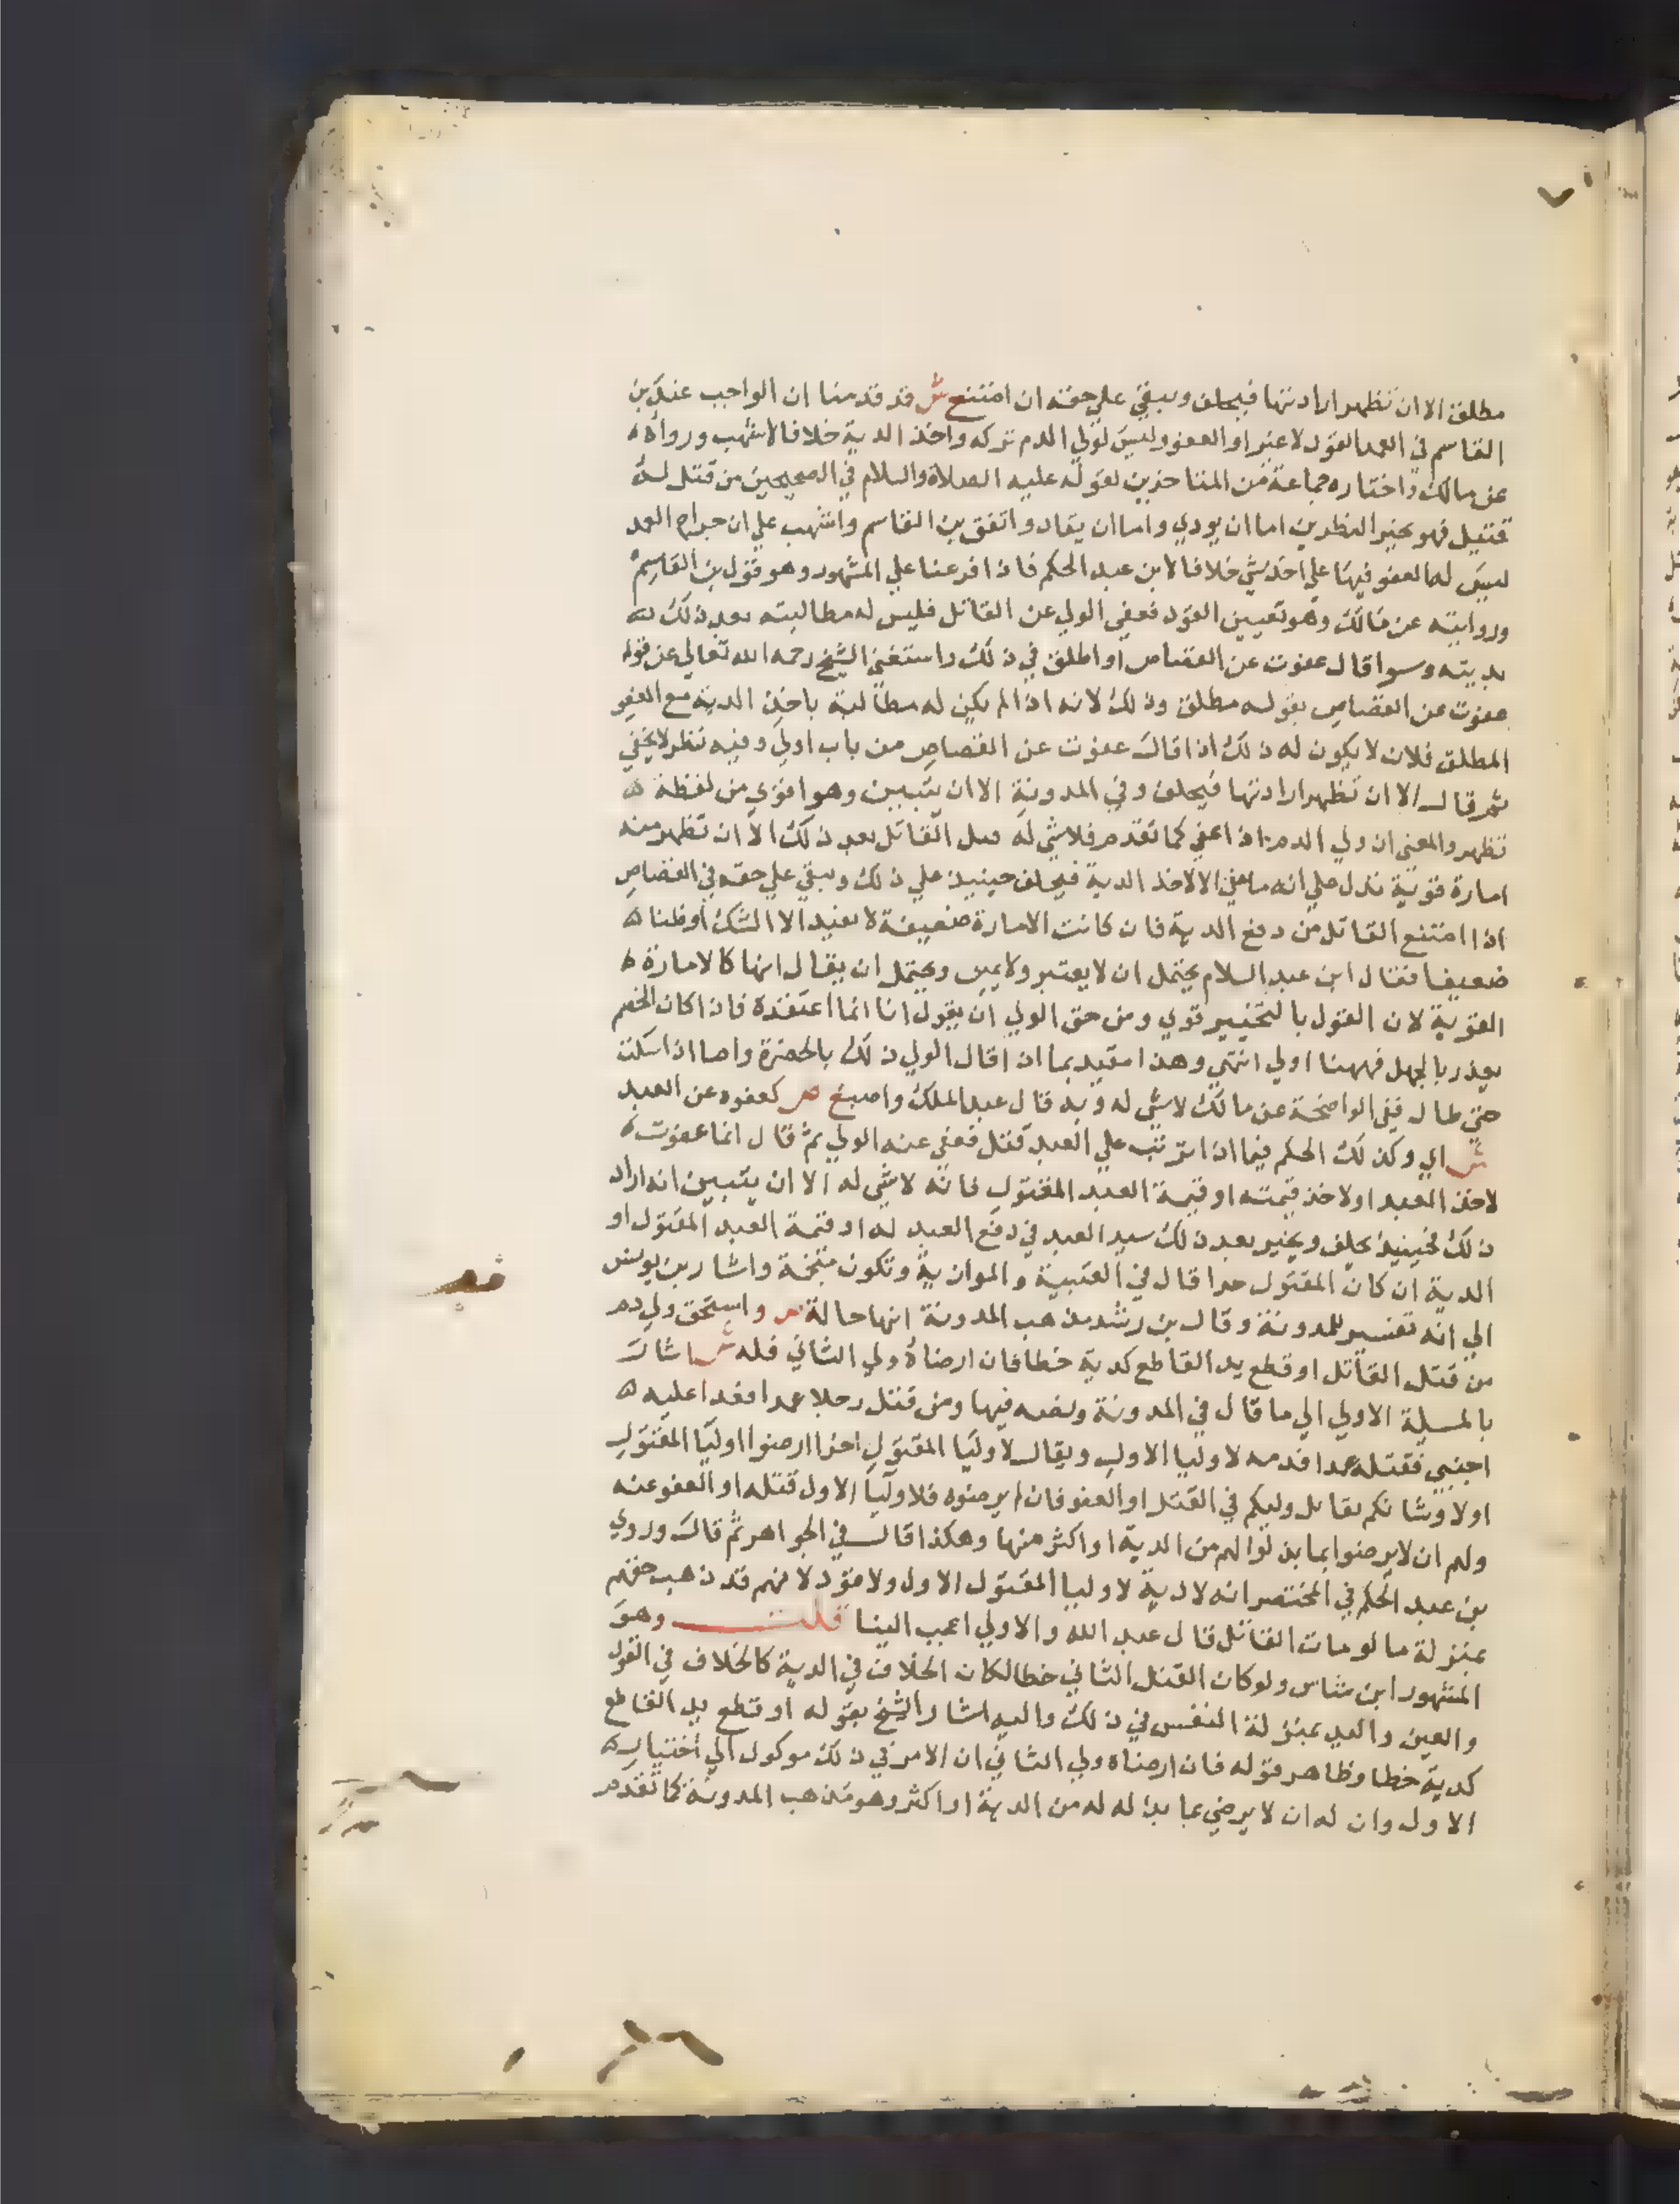 مطلق الا ان تظهر ارادتها فيحلف ويبقي علي حقه ان امتنع ش قد قدمنا ان الواجب عند بن
القاسم في العمد القود لا غير او العفو وليس لولي الدم تركه واخذ الدية خلافا لاشهب ورواه
عن مالك واختاره جماعة من المتاخرين لقوله عليه الصلاة والسلام في الصحيحين من قتل له
قتيل فهو بخير النظرين اما ان يودي واما ان يقاد واتفق بن القاسم واشهب علي ان جراح العمد
ليس له العفو فيها علي اخذ شي خلافا لابن عبد الحكم فاذا فرعنا علي المشهور وهو قول بن القاسم
وروايته عن مالك وهو تعيين القود فعفي الولي عن القاتل فليس له مطالبته بعد ذلك
بديته وسوا قال عفوت عن القصاص او اطلق في ذلك واستغني الشيخ رحمه الله تعالي عن قوله
عفوت عن القصاص بقوله مطلق وذلك لانه اذا لم يكن له مطالبة باخذ الدية مع العفو
المطلق فلان لا يكون له ذلك اذا قال عفوت عن القصاص من باب اولي وفيه نظر لا يخفي
ثم قال الا ان تظهر ارادتها فيحلف وفي المدونة الا ان يتبين وهو اقوي من لفظة
تظهر والمعني ان ولي الدم اذا عفي كما تقدم فلا شي له قبل القاتل بعد ذلك الا ان تظهر منه
امارة قوية تدل علي انه ما عفي الا لاخذ الدية فيحلف حينيذ علي ذلك ويبقي علي حقه في القصاص
اذا امتنع القاتل من دفع الدية فان كانت الامارة ضعيفة لا تفيد الا الشك او ظنا
ضعيفا فقال ابن عبد السلام يحتمل ان لا يعتبر ولا يمين ويحتمل ان يقال انها كالامارة
القوية لان القول بالتخيير قوي ومن حق الولي ان يقول انا انما اعتقدة فاذا كان الخصم
يعذر بالجهل فههنا اولي انتهي وهذا مقيد بما اذا قال الولي ذلك بالحضرة واما اذا سكت
حتي طال ففي الواضحة عن مالك لا شي له وبه قال عبد الملك واصبغ ص كعفوه عن العبد
ش اي وكذلك الحكم فيما اذا ترتب علي العبد قتل فعفي عنه الولي ثم قال انما عفوت
لاخذ العبد او لاخذ قيمته او قيمة العبد المقتول فانه لا شي له الا ان يتبين انه اراد
ذلك فحينيذ يحلف ويخير بعد ذلك سيد العبد في دفع العبد له او قيمة العبد المقتول او
الدية ان كان المقتول حرا قال في العتبية والموازية وتكون منجمة واشار بن يونس
الي انه تفسير للمدونة وقال بن رشد مذهب المدونة انها حالة ص واستحق ولي دم
من قتل القاتل او قطع يد القاطع كدية خطا فان ارضاه ولي الثاني فله ش اشار
بالمسيلة الاولي الي ما قال في المدونة ونصه فيها ومن قتل رجلا عمدا فعدا عليه
اجنبي فقتله عمدا فدمه لاوليا الاول ويقال لاوليا المقتول اخرا ارضوا اوليا المقتول
اولا وشانكم بقاتل وليكم في القتل او العفو فان لم يرضوه فلاوليا الاول قتله او العفو عنه
ولهم ان لا يرضوا بما بذلوا لهم من الدية او اكثر منها وهكذا قال في الجواهر ثم قال وروي
بن عبد الحكم في المختصر انه لا دية لاوليا المقتول الاول ولا قود لانهم قد ذهب حقهم
بمنزلة ما لو مات القاتل قال عبد الله والاولي اعجب الينا قلت وهو
المشهور ابن شاس ولو كان القتل الثاني خطا لكان الخلاف في الدية كالخلاف في القود
والعين واليد بمنزلة النفس في ذلك واليه اشار الشيخ بقوله او قطع يد القاطع
كدية خطا وظاهر قوله فان ارضاه ولي الثاني ان الامر في ذلك موكول الي اختيار
الاول وان له ان لا يرضي بما بذله له من الدية او اكثر وهو مذهب المدونة كما تقدم